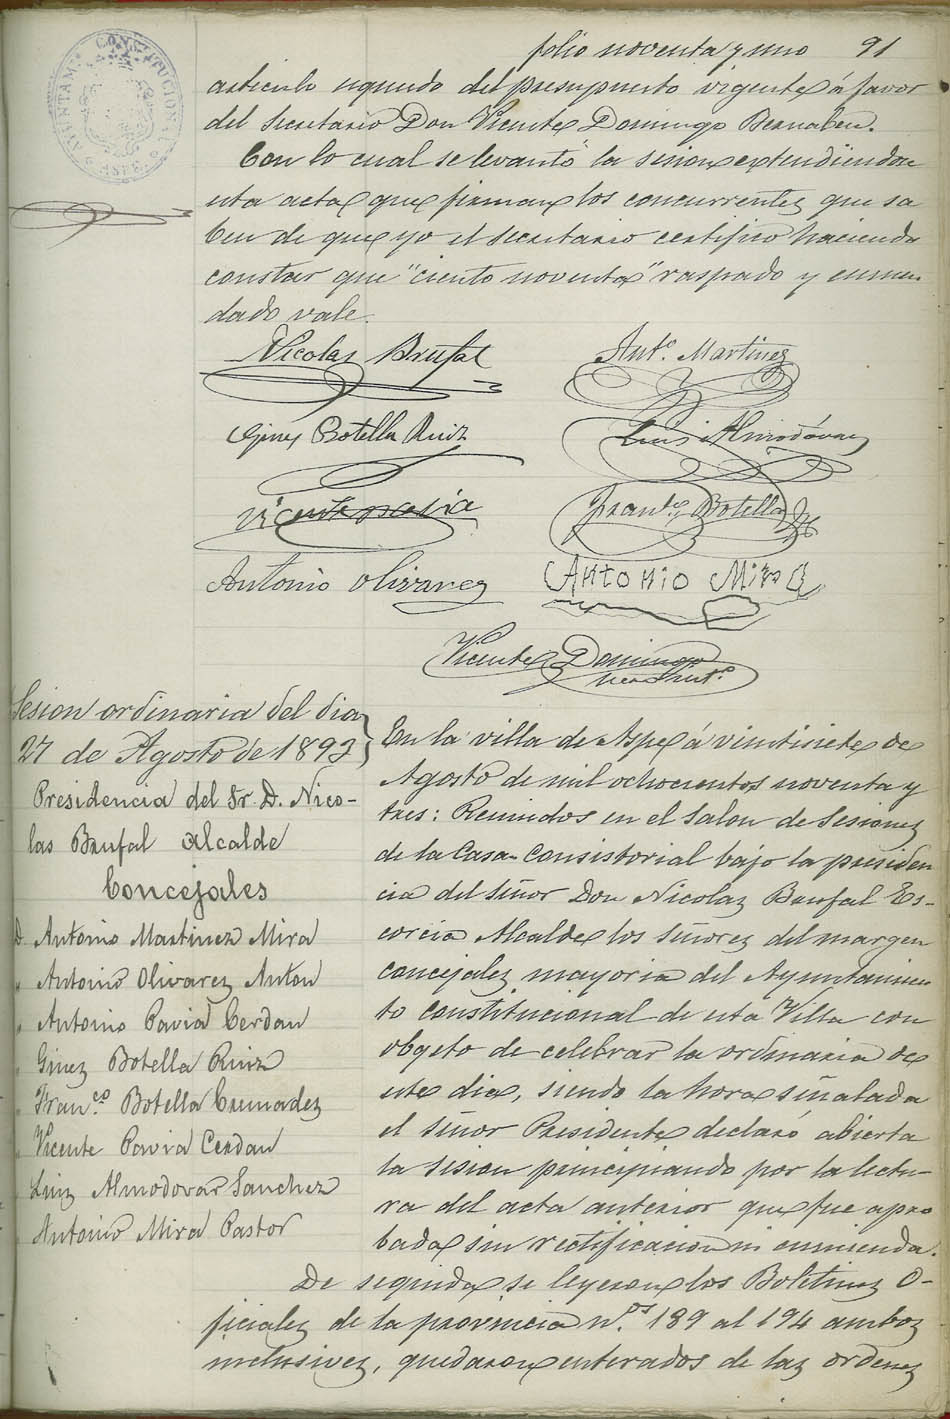 folio noventa y uno 91
AYUNTAM. CONSTITUCIONAL ASPE
articulo segundo del presupuesto vigente á favor
del Secretario Don Vicente Domingo Bernabeu.
Con lo cual se levantó la sesion extendiendose
esta acta que firman los concurrentes que sa
ben de que yo el Secretario certifico haciendo
constar que "ciento noventa" raspado y enmen
dado vale.
Nicolás Brufal Ant.º Martinez
Gines Botella Ruiz Luis Almodóvar
Vicente pavia Fran.co Botella
Antonio Olivares Antonio Mira
Vicente Domingo
Secret.º
Sesion ordinaria del dia
27 de Agosto de 1893
Presidencia del Sr. D. Nico-
las Brufal Alcalde
Concejales
D. Antonio Martinez Mira
" Antonio Olivares Anton
" Antonio Pavia Cerdan
" Gines Botella Ruiz
" Fran.co Botella Cremades
" Vicente Pavia Cerdan
" Luis Almodovar Sanchez
" Antonio Mira Pastor
En la villa de Aspe á veintisiete de
Agosto de mil ochocientos noventa y
tres: Reunidos en el Salon de Sesiones
de la Casa-Consistorial bajo la presiden
cia del Señor Don Nicolas Brufal Es-
corcia Alcalde los Señores del margen
concejales mayoria del Ayuntamien
to constitucional de esta Villa con
obgeto de celebrar la ordinaria de
este dia, siendo la hora señalada
el Señor Presidente declaró abierta
la sesion principiando por la lectu-
ra del acta anterior que fue apro
bada sin rectificacion ni enmienda.
De seguida se leyeron los Boletines O-
ficiales de la provincia n.os 189 al 194 ambos
inclusives, quedaron enterados de las ordenes